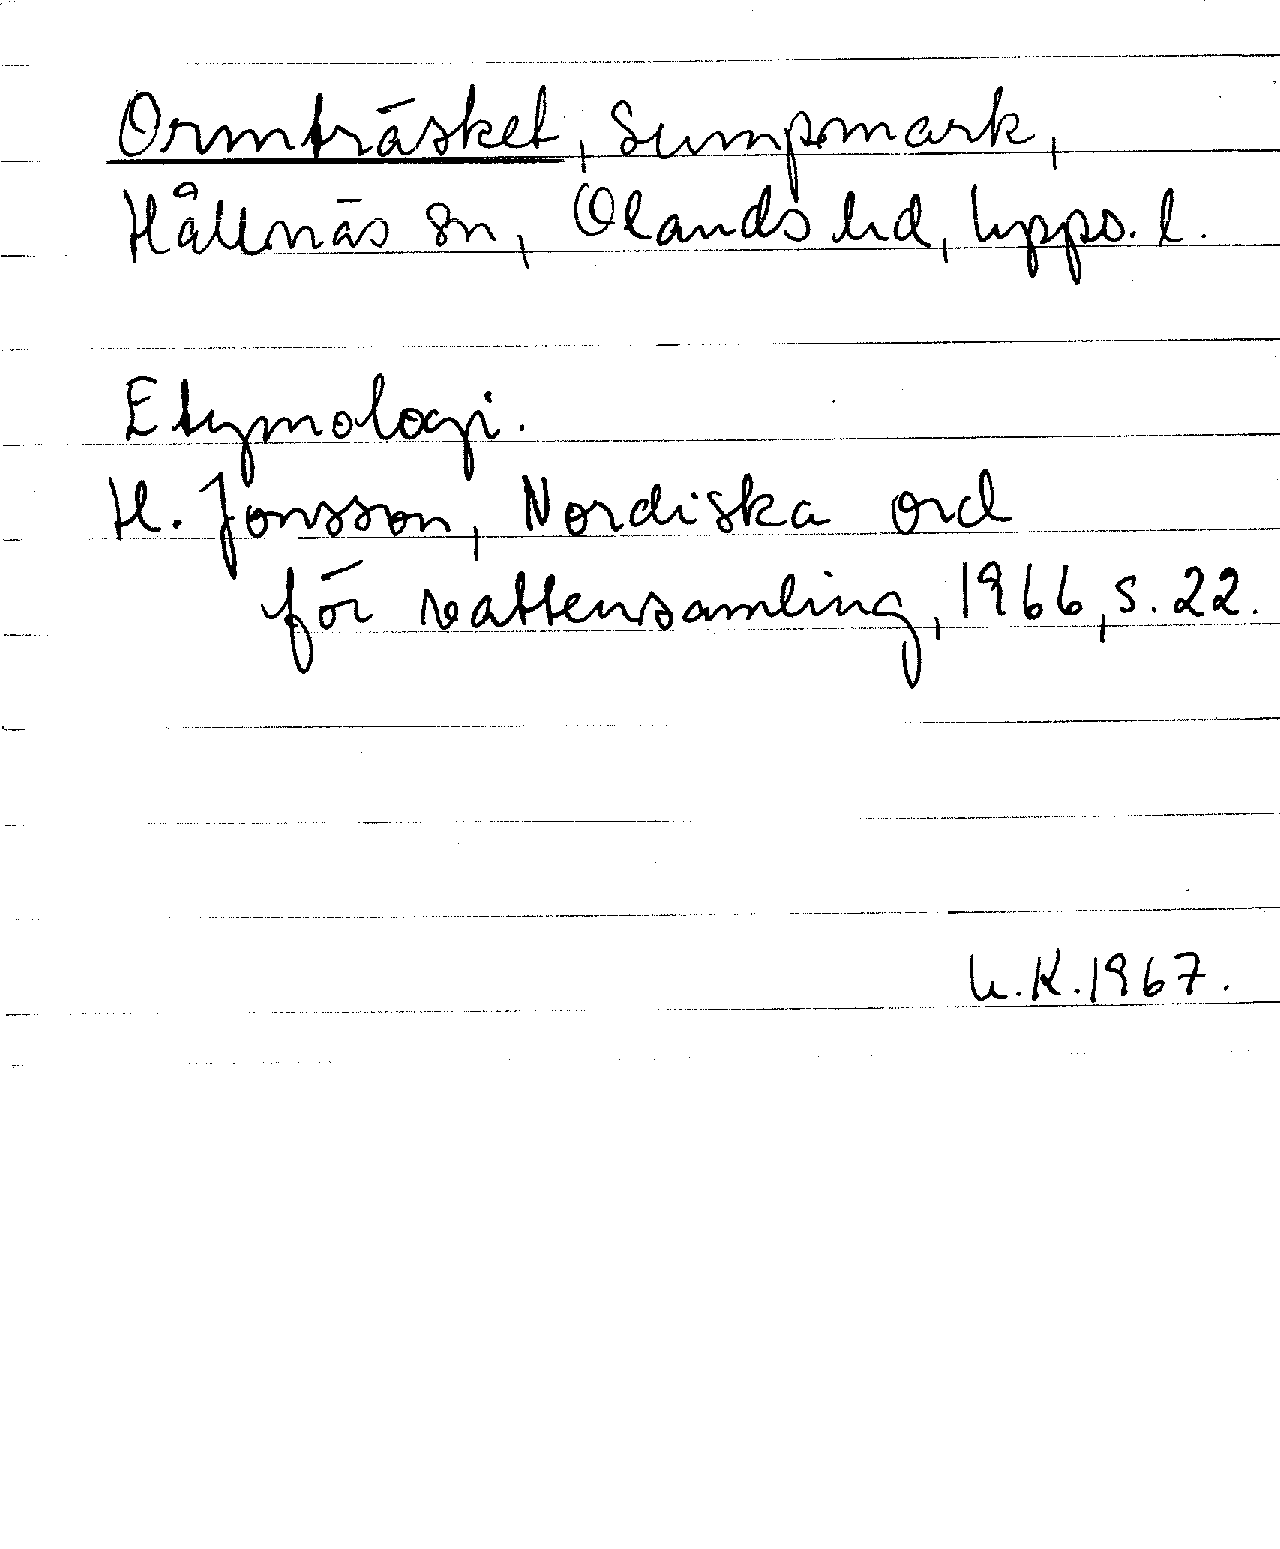 Ormträsket, Sumpmark,
Hållnäs sn, Olands hd, Upps. l.
Etymologi.
H. Jonsson, Nordiska ord
för vattensamling, 1966, s. 22.
U.K.1967.